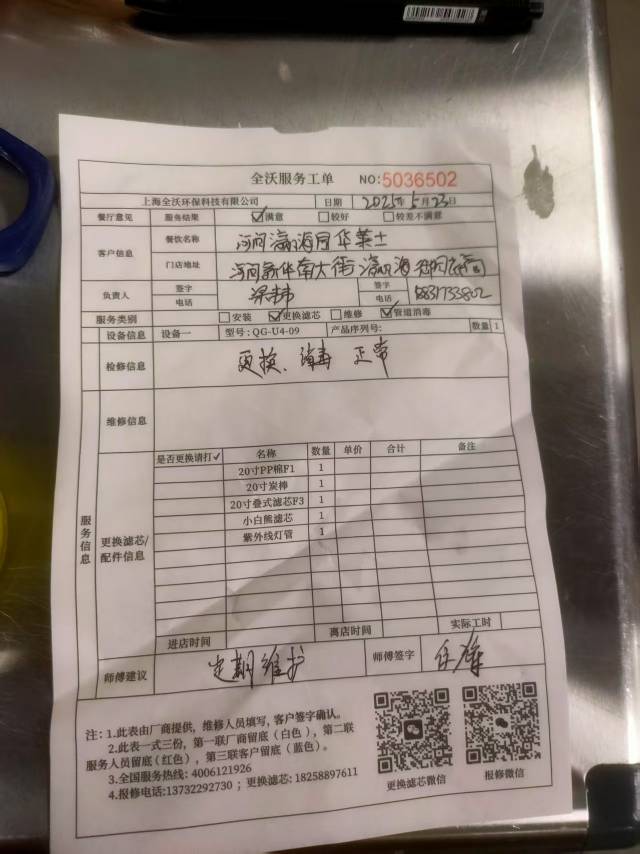 全沃服务工单 NO:5036502
上海全沃环保科技有限公司 日期 2025年5月23日
餐厅意见 服务结果 ☑满意 □较好 □较差不满意
客户信息 餐饮名称 河间瀛海园华莱士
门店地址 河间新华南大街瀛海
负责人 签字 签字
电话 电话
服务类别 □安装 ☑更换滤芯 □维修 ☑管道消毒
设备信息 设备一 型号: QG-U4-09 产品序列号: 数量 1
检修信息 更换、消毒 正常
维修信息
服务信息
更换滤芯/配件信息
是否更换请打✓ 名称 数量 单价 合计 备注
20寸PP棉F1 1
20寸炭棒 1
20寸叠式滤芯F3 1
小白熊滤芯 1
紫外线灯管 1
进店时间 离店时间 实际工时
师傅建议 定期维护 师傅签字
注: 1.此表由厂商提供, 维修人员填写, 客户签字确认。
2.此表一式三份, 第一联厂商留底(白色), 第二联
服务人员留底(红色), 第三联客户留底(蓝色)。
3.全国服务热线: 4006121926
4.报修电话:13732292730 ; 更换滤芯: 18258897611
更换滤芯微信 报修微信